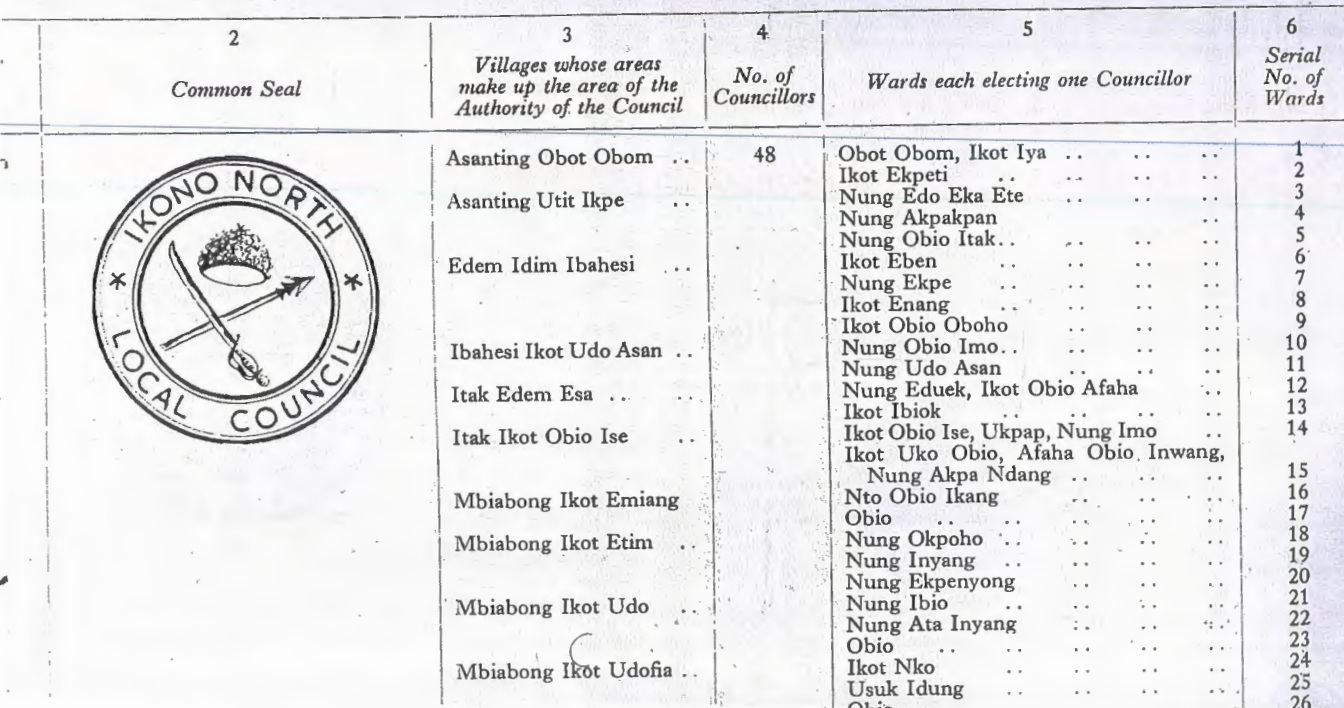 2 3 4 5 6
Common Seal
Villages whose areas
make up the area of the
Authority of the Council
No. of
Councillors
Wards each electing one Councillor
Serial
No. of
Wards
IKONO NORTH
LOCAL COUNCIL
Asanting Obot Obom .. 48 Obot Obom, Ikot Iya .. .. .. 1
Ikot Ekpeti .. .. .. .. 2
Asanting Utit Ikpe .. Nung Edo Eka Ete .. .. .. 3
Nung Akpakpan .. 4
Nung Obio Itak .. .. .. .. 5
Edem Idim Ibahesi .. Ikot Eben .. .. .. .. 6
Nung Ekpe .. .. .. .. 7
Ikot Enang .. .. .. .. 8
Ikot Obio Oboho .. .. .. 9
Ibahesi Ikot Udo Asan .. Nung Obio Imo .. .. .. .. 10
Nung Udo Asan .. .. .. 11
Itak Edem Esa .. .. Nung Eduek, Ikot Obio Afaha .. 12
Ikot Ibiok .. .. .. .. 13
Itak Ikot Obio Ise .. Ikot Obio Ise, Ukpap, Nung Imo .. 14
Ikot Uko Obio, Afaha Obio Inwang,
Nung Akpa Ndang .. .. .. 15
Mbiabong Ikot Emiang Nto Obio Ikang .. .. .. 16
Obio .. .. .. .. .. 17
Mbiabong Ikot Etim .. Nung Okpoho .. .. .. .. 18
Nung Inyang .. .. .. .. 19
Nung Ekpenyong .. .. .. 20
Mbiabong Ikot Udo .. Nung Ibio .. .. .. .. 21
Nung Ata Inyang .. .. .. 22
Obio .. .. .. .. .. 23
Mbiabong Ikot Udofia .. Ikot Nko .. .. .. .. 24
Usuk Idung .. .. .. .. 25
26